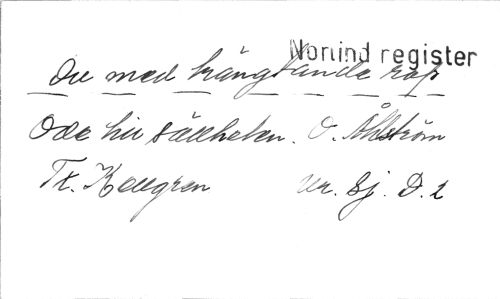 Norlind register
Du med trängtande rop
Ode till sällheten. O. Åhlström
Tx. Kellgren ur. Sj. D. 2